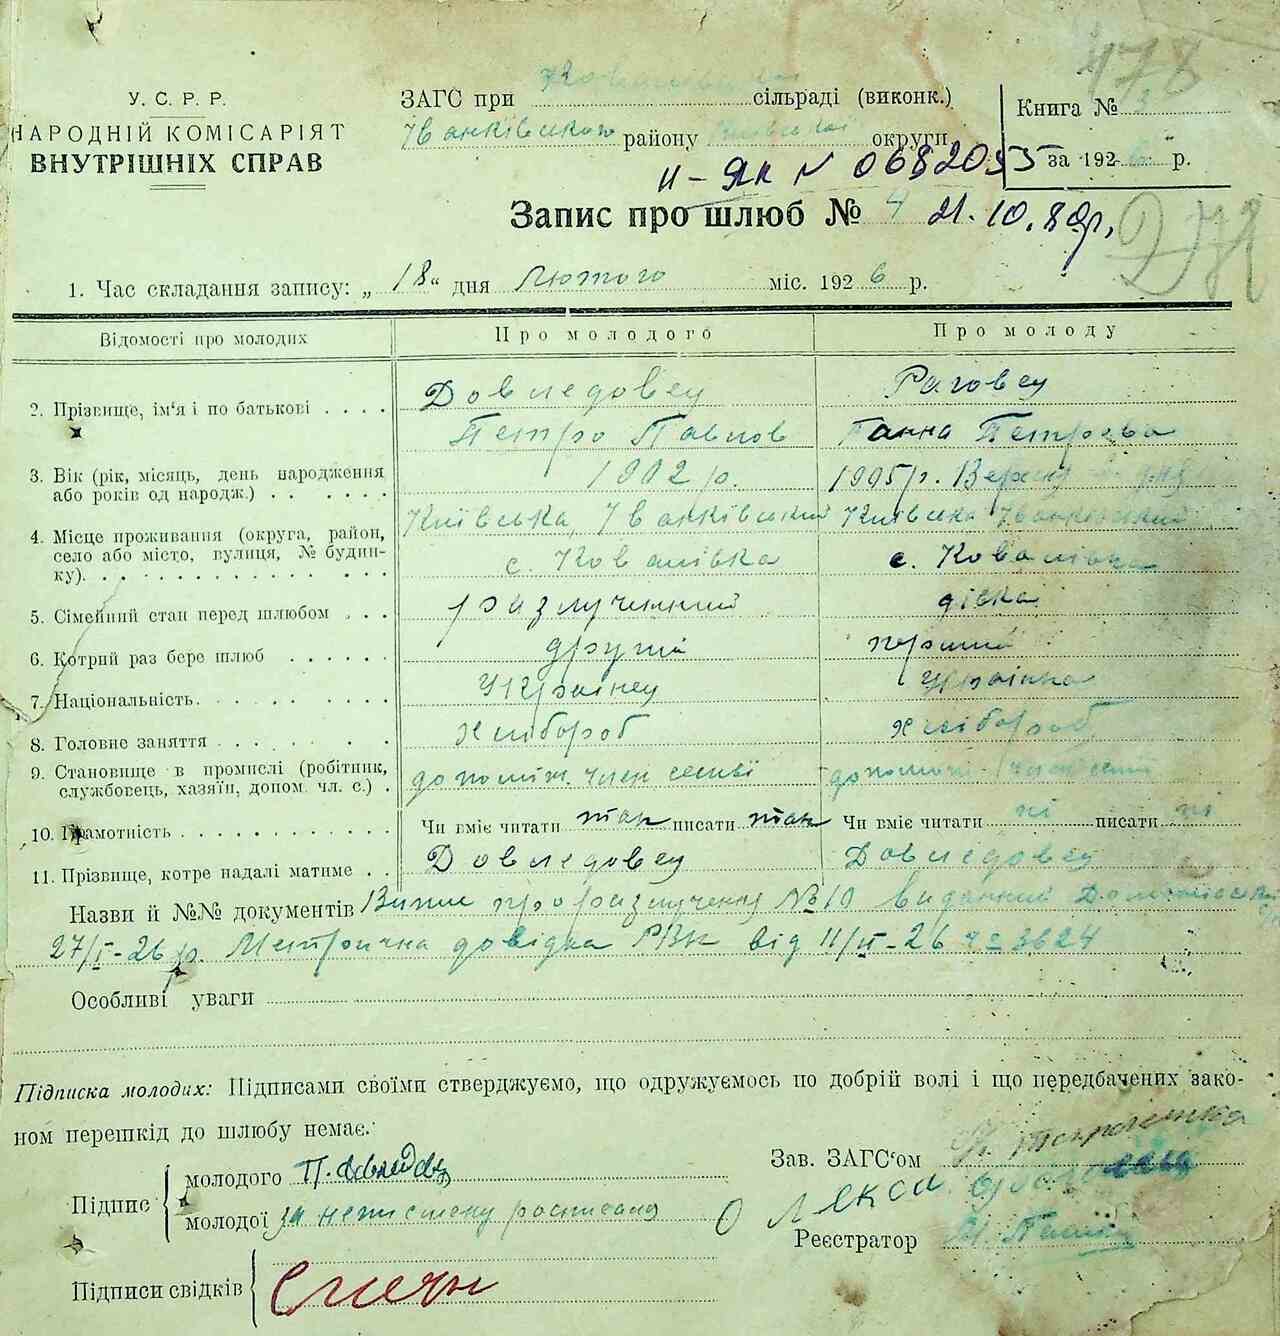 478
У. С. Р. Р.
НАРОДНІЙ КОМІСАРІЯТ
ВНУТРІШНІХ СПРАВ
ЗАГС при сільраді (виконк.)
Іванківського району Київської округи
Книга № 3
за 1926 р.
II-ЯК № 0682055
Запис про шлюб № 4 21.10.80р.
1. Час складання запису: „18“ дня Лютого міс. 1926 р.
Відомості про молодих Про молодого Про молоду
2. Прізвище, ім‘я і по батькові . . . . Довледовец Раговец
Петро Павлов Ганна Петрова
3. Вік (рік, місяць, день народження або років од народж.) . . . . . . . 1902 р. 1905 р. Вересня
4. Місце проживання (округа, район, село або місто, вулиця, № будинку). Київська, Іванківський Київська Іванківський
с. Ковалівка с. Ковалівка
5. Сімейний стан перед шлюбом . . . разлученний дівка
6. Котрий раз бере шлюб . . . . . . другий перший
7. Національність. . . . . . . . . . Українец Українка
8. Головне заняття . . . . . . . . . хлібороб хлібороб
9. Становище в промислі (робітник, службовець, хазяїн, допом. чл. с.) . допоміж. член семьї допоміж. член семьї
10. Грамотність . . . . . . . . . . . . Чи вміє читати так писати так Чи вміє читати ні писати ні
11. Прізвище, котре надалі матиме . . Довледовец Довледовец
Назви й №№ документів Випис про разлучення №10 виданний
27/I-26 р. Метрична довідка РВК від 11/II-26 ч= 3624
Особливі уваги
Підписка молодих: Підписами своїми стверджуємо, що одружуємось по добрій волі і що передбачених зако-
ном перешкід до шлюбу немає.
Підпис
молодого П.
молодої за неписмену росписалд
Зав. ЗАГС‘ом
Олекса
Реєстратор
Підписи свідків